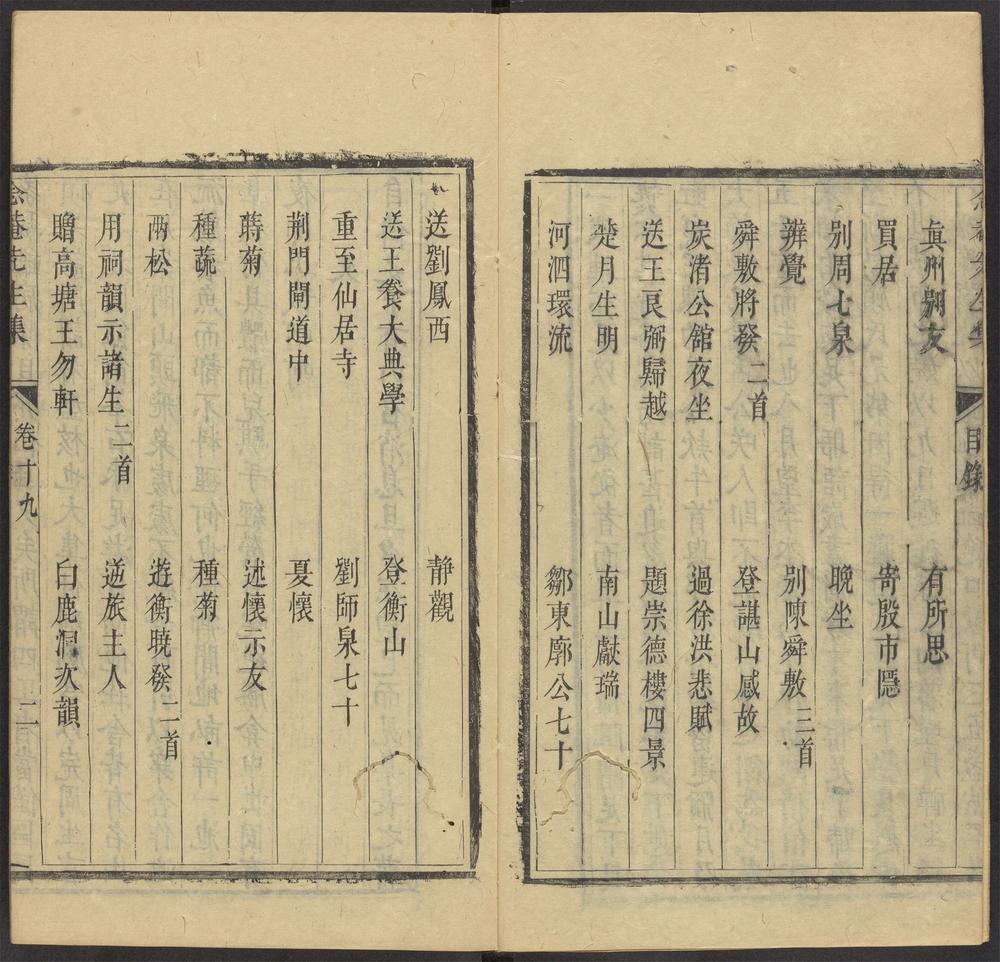 目錄
真州別友 有所思
買居 寄殷市隱
別周七泉 晚坐
辨覺 別陳舜敷三首
舜敷將發二首 登諶山感故
炭渚公館夜坐 過徐洪悲賦
送王良弼歸越 題崇德樓四景
楚月生明 南山獻瑞
河泗環流 鄒東廓公七十
送劉鳳西 静觀
送王養大典學 登衡山
重至仙居寺 劉師泉七十
荆門閘道中 憂懷
蒔菊 述懷示友
種蔬 種菊
兩松 遊衡曉發二首
用祠韻示諸生二首 逆旅主人
贈高塘王勿軒 白鹿洞次韻
念菴先生集 卷十九 二